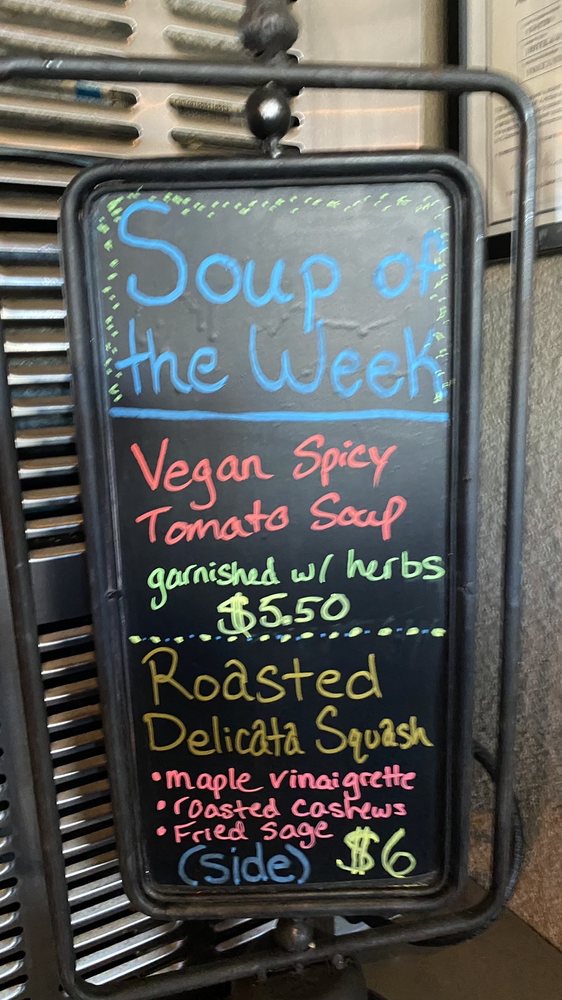 Soup of
the Week
Vegan Spicy
Tomato Soup
garnished w/ herbs
$5.50
Roasted
Delicata Squash
•maple vinaigrette
•roasted cashews
•Fried sage
(side) $6